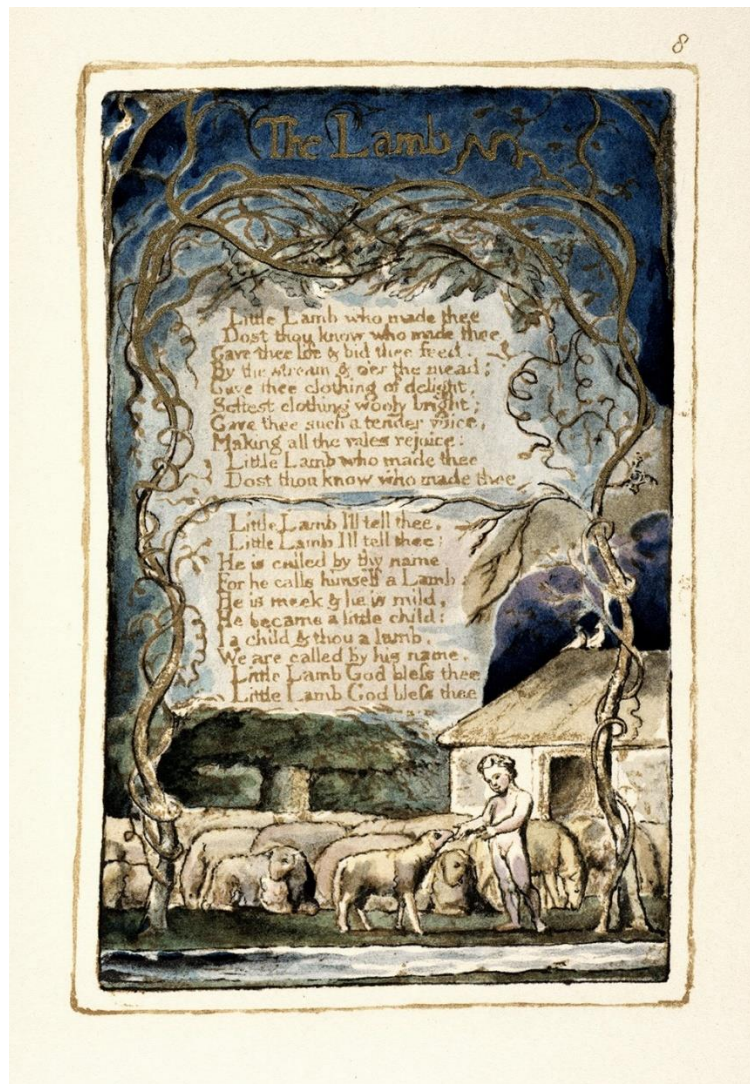 8
The Lamb
Little Lamb who made thee
Dost thou know who made thee
Gave thee life & bid thee feed.
By the stream & oer the mead;
Gave thee clothing of delight,
Softest clothing wooly bright;
Gave thee such a tender voice,
Making all the vales rejoice:
Little Lamb who made thee
Dost thou know who made thee
Little Lamb Ill tell thee,
Little Lamb Ill tell thee;
He is called by thy name,
For he calls himself a Lamb:
He is meek & he is mild,
He became a little child:
I a child & thou a lamb,
We are called by his name.
Little Lamb God bleſs thee
Little Lamb God bleſs thee